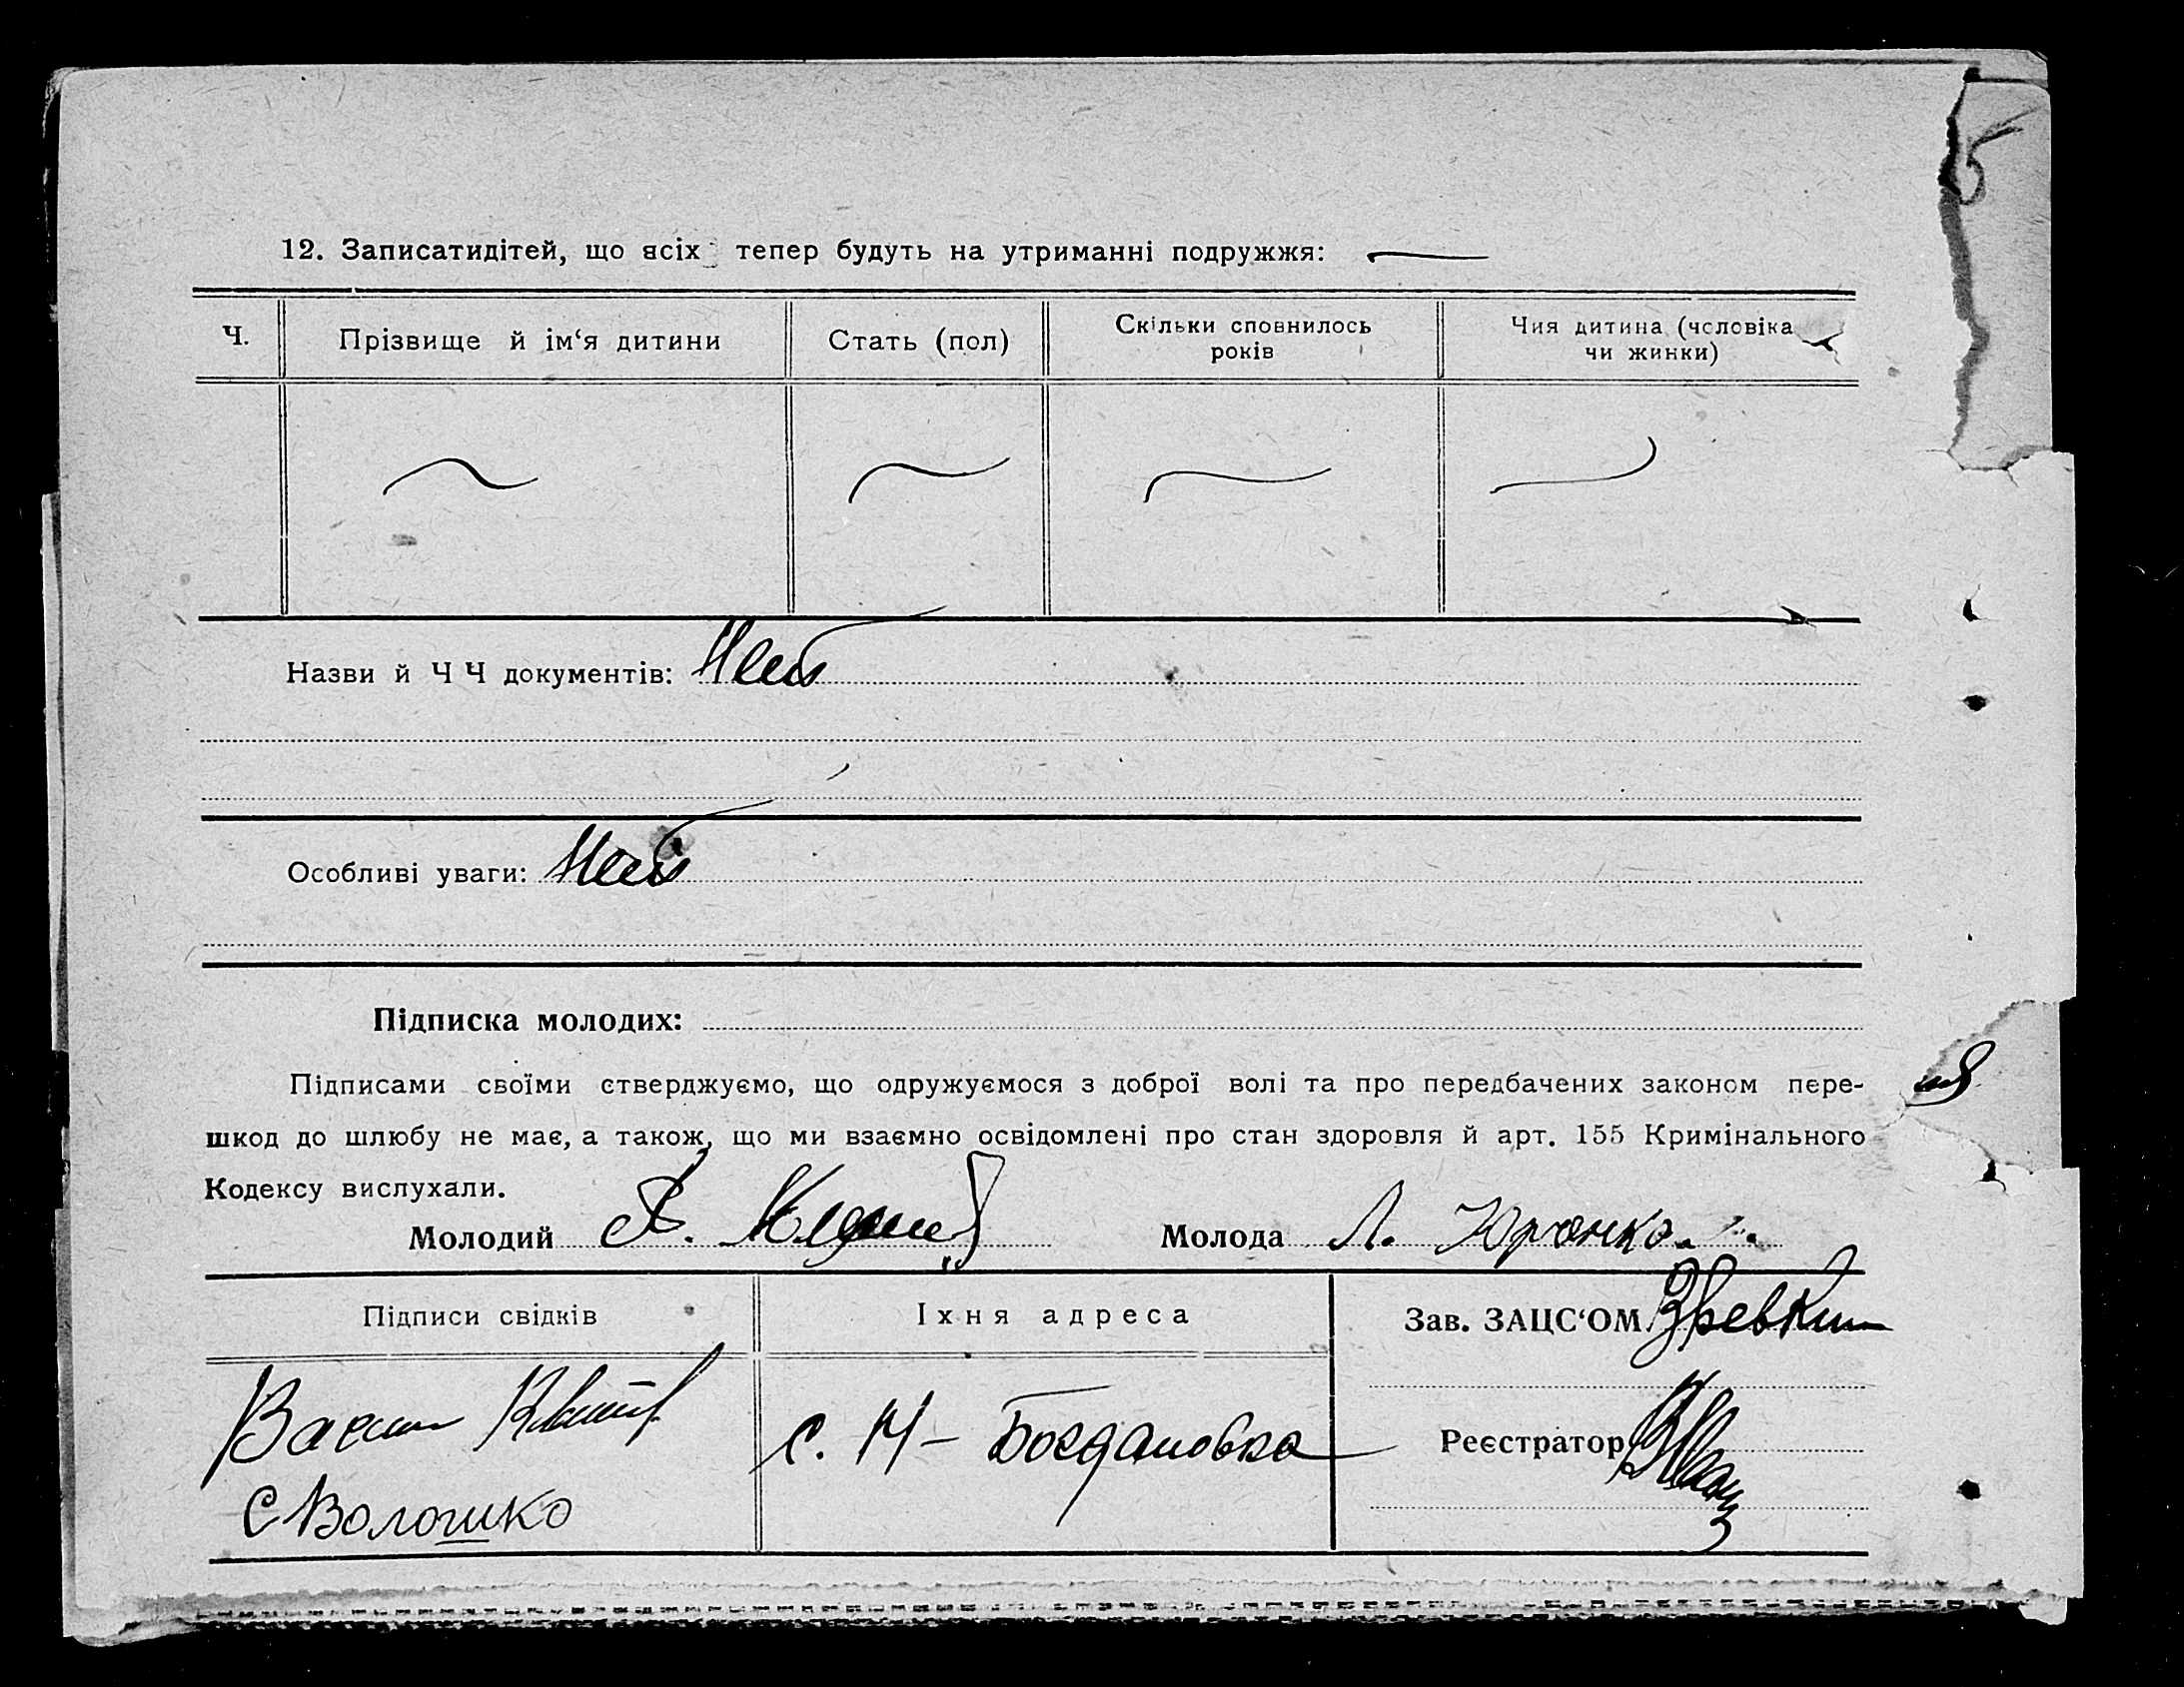 12. Записатидітей, що всіх тепер будуть на утриманні подружжя: —
Ч.
Прізвище й ім‘я дитини
Стать (пол)
Скільки сповнилось
років
Чия дитина (чоловіка
чи жинки)
Назви й Ч Ч документів: Нет
Особливі уваги: Нет
Підписка молодих:
Підписами своїми стверджуємо, що одружуємося з доброї волі та про передбачених законом пере-
шкод до шлюбу не має, а також, що ми взаємно освідомлені про стан здоровля й арт. 155 Кримінального
Кодексу вислухали.
Молодий
Молода Л. Юрченко.
Підписи свідків
Їхня адреса
Зав. ЗАЦС‘ОМ
с. Н - Богдановка
Реєстратор
С Волошко